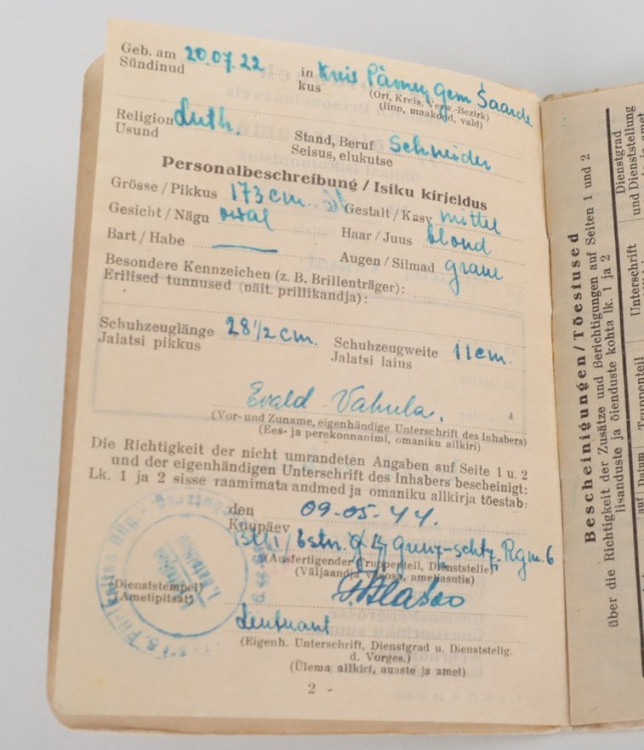 Geb. am 20.07.22 in Kreis Pärnu, Gem. Saarde
Sündinud kus (Ort, Kreis, Verw.-Bezirk)
(linn, maakond, vald)
Religion Luth. Stand, Beruf Schneider
Usund Seisus, elukutse
Personalbeschreibung / Isiku kirjeldus
Grösse / Pikkus 173 cm. Gestalt / Kasv mittel
Gesicht / Nägu oval Haar / Juus blond
Bart / Habe — Augen / Silmad grau
Besondere Kennzeichen (z. B. Brillenträger):
Erilised tunnused (näit. prillikandja):
Schuhzeuglänge 28 1/2 cm. Schuhzeugweite 11 cm.
Jalatsi pikkus Jalatsi laius
Evald Vahula.
(Vor- und Zuname, eigenhändige Unterschrift des Inhabers)
(Ees- ja perekonnanimi, omaniku allkiri)
Die Richtigkeit der nicht umrandeten Angaben auf Seite 1 u. 2
und der eigenhändigen Unterschrift des Inhabers bescheinigt:
Lk. 1 ja 2 sisse raamimata andmed ja omaniku allkirja tõestab:
den 09.05.44.
Kuupäev
Estn. Grenz-schtz. Rgm. 6
(Ausfertigender Truppenteil, Dienststelle)
(Väljaandja
(Dienststempel)
(Ametipitsat)
Leutnant
(Eigenh. Unterschrift, Dienstgrad u. Dienststellg.
d. Vorges.)
(Ülema allkiri, auaste ja amet)
2
Bescheinigungen / Tõestused
über die Richtigkeit der Zusätze und Berichtigungen auf Seiten 1 und 2
lisanduste ja õienduste kohta lk. 1 ja 2
Dienstgrad
und Dienststellung
Unterschrift
Truppenteil
Datum
auf